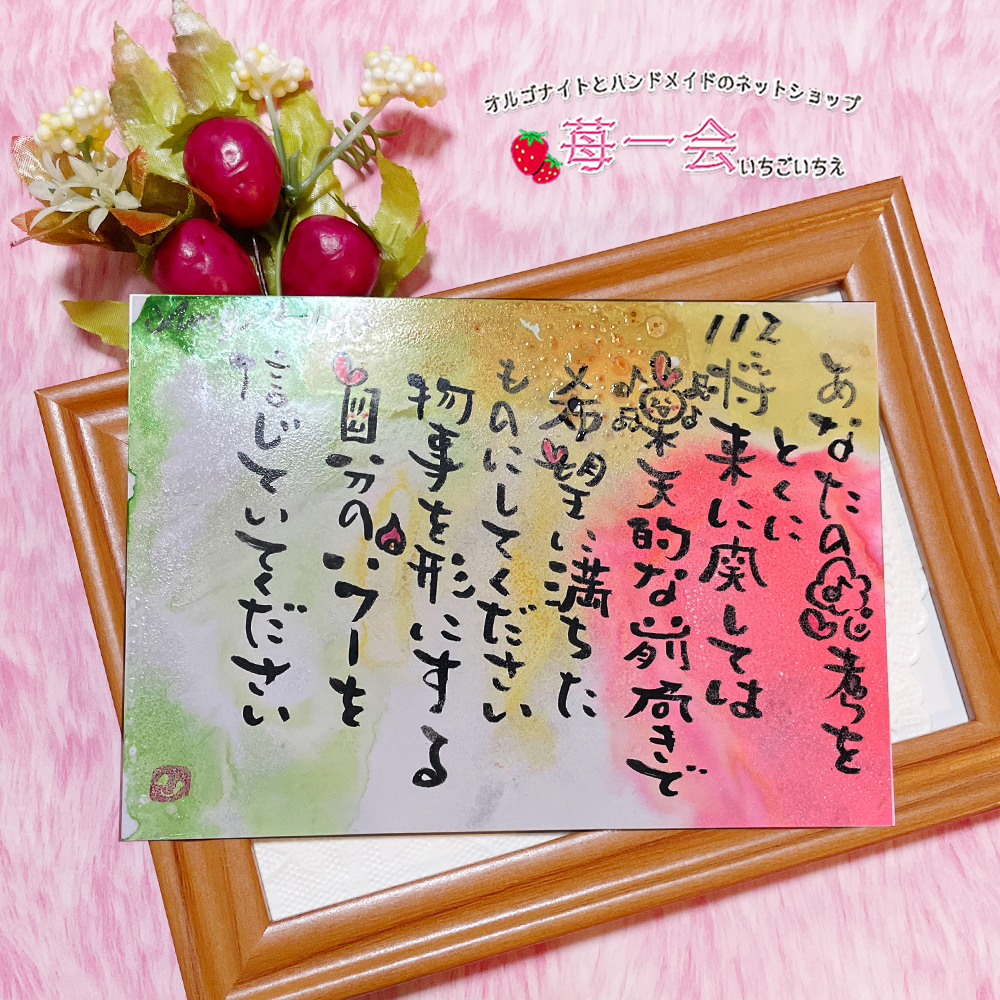 オルゴナイトとハンドメイドのネットショップ
苺一会
いちごいちえ
112
あなたの思考を
とくに
将来に関しては
楽天的な前向きで
希望に満ちた
ものにしてください
物事を形にする
自分のパワーを
信じていてください